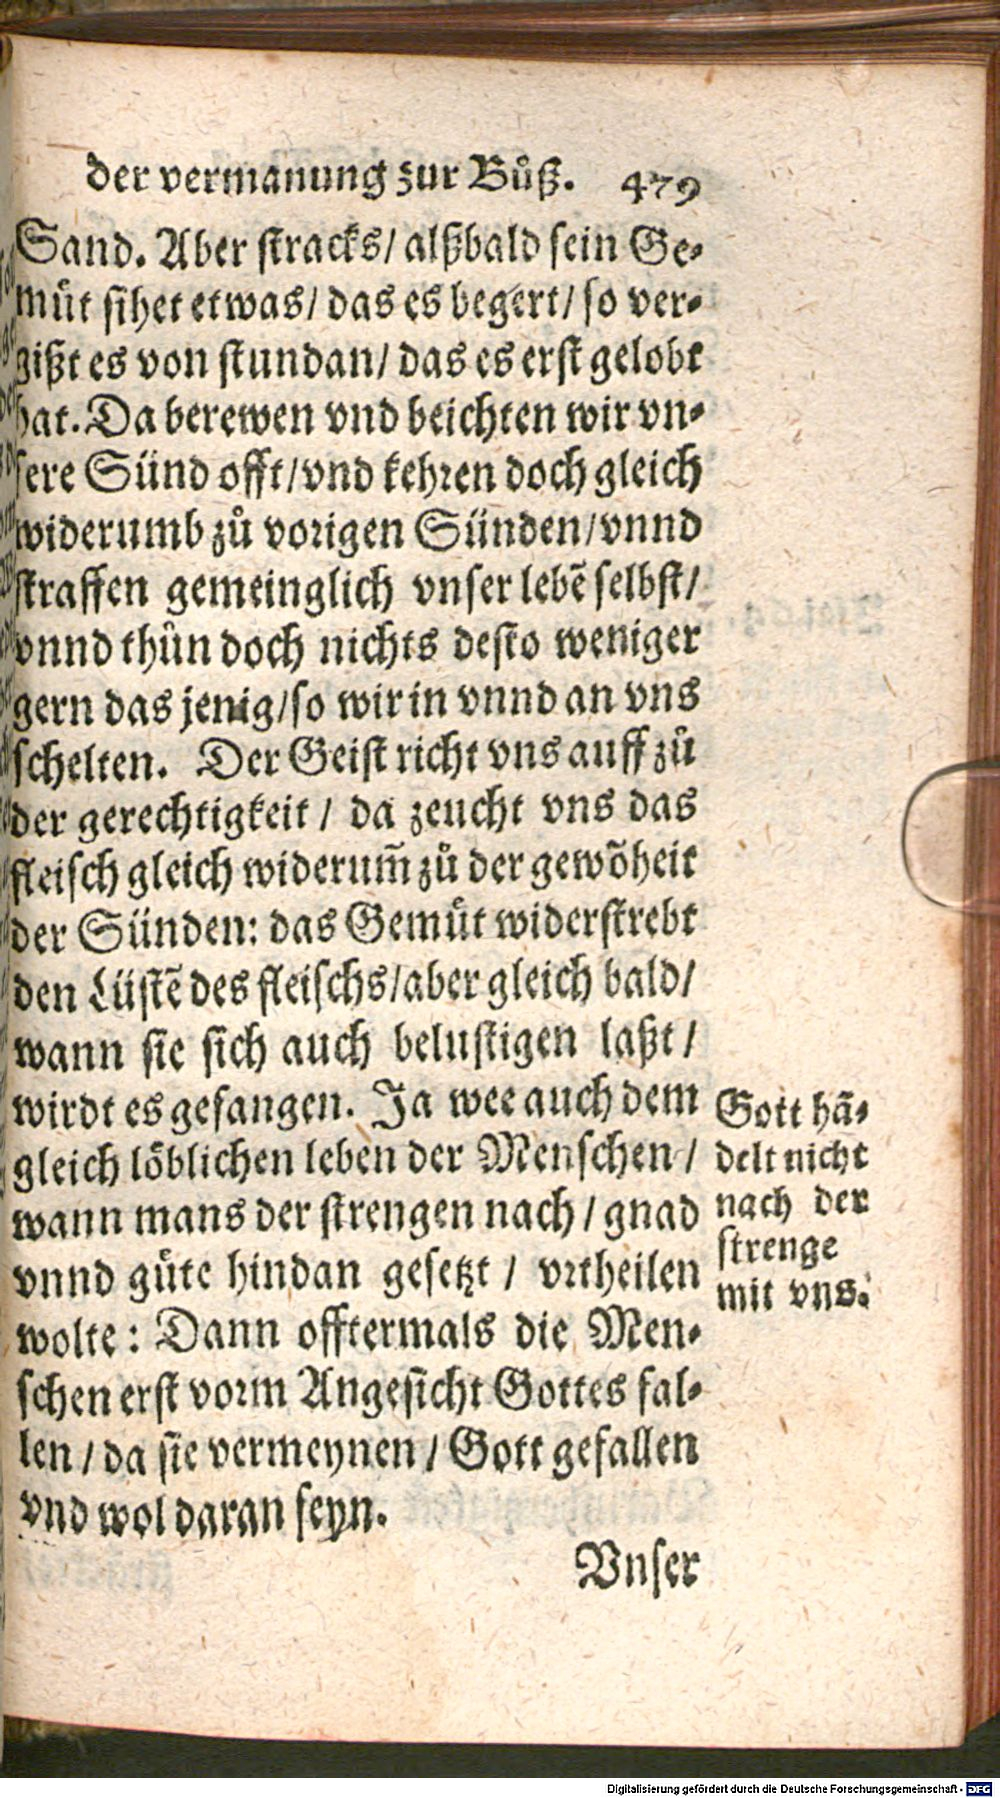 der vermanung zur Bůß. 479
Sand. Aber stracks/ alßbald sein Ge-
můt sihet etwas/ das es begert/ so ver-
gißt es von stundan/ das es erst gelobt
hat. Da berewen vnd beichten wir vn-
sere Sünd offt/ vnd kehren doch gleich
widerumb zů vorigen Sünden/ vnnd
straffen gemeinglich vnser lebẽ selbst/
vnnd thůn doch nichts desto weniger
gern das jenig/ so wir in vnnd an vns
schelten. Der Geist richt vns auff zů
der gerechtigkeit/ da zeucht vns das
fleisch gleich widerum̃ zů der gewõheit
der Sünden: das Gemůt widerstrebt
den Lüstẽ des fleischs/ aber gleich bald/
wann sie sich auch belustigen laßt/
wirdt es gefangen. Ja wee auch dem
gleich löblichen leben der Menschen/
wann mans der strengen nach/ gnad
vnnd gůte hindan gesetzt/ vrtheilen
wolte: Dann offtermals die Men-
schen erst vorm Angesicht Gottes fal-
len/ da sie vermeynen/ Gott gefallen
vnd wol daran seyn.
Vnser
Gott hã-
delt nicht
nach der
strenge
mit vns.
Digitalisierung gefördert durch die Deutsche Forschungsgemeinschaft - DFG